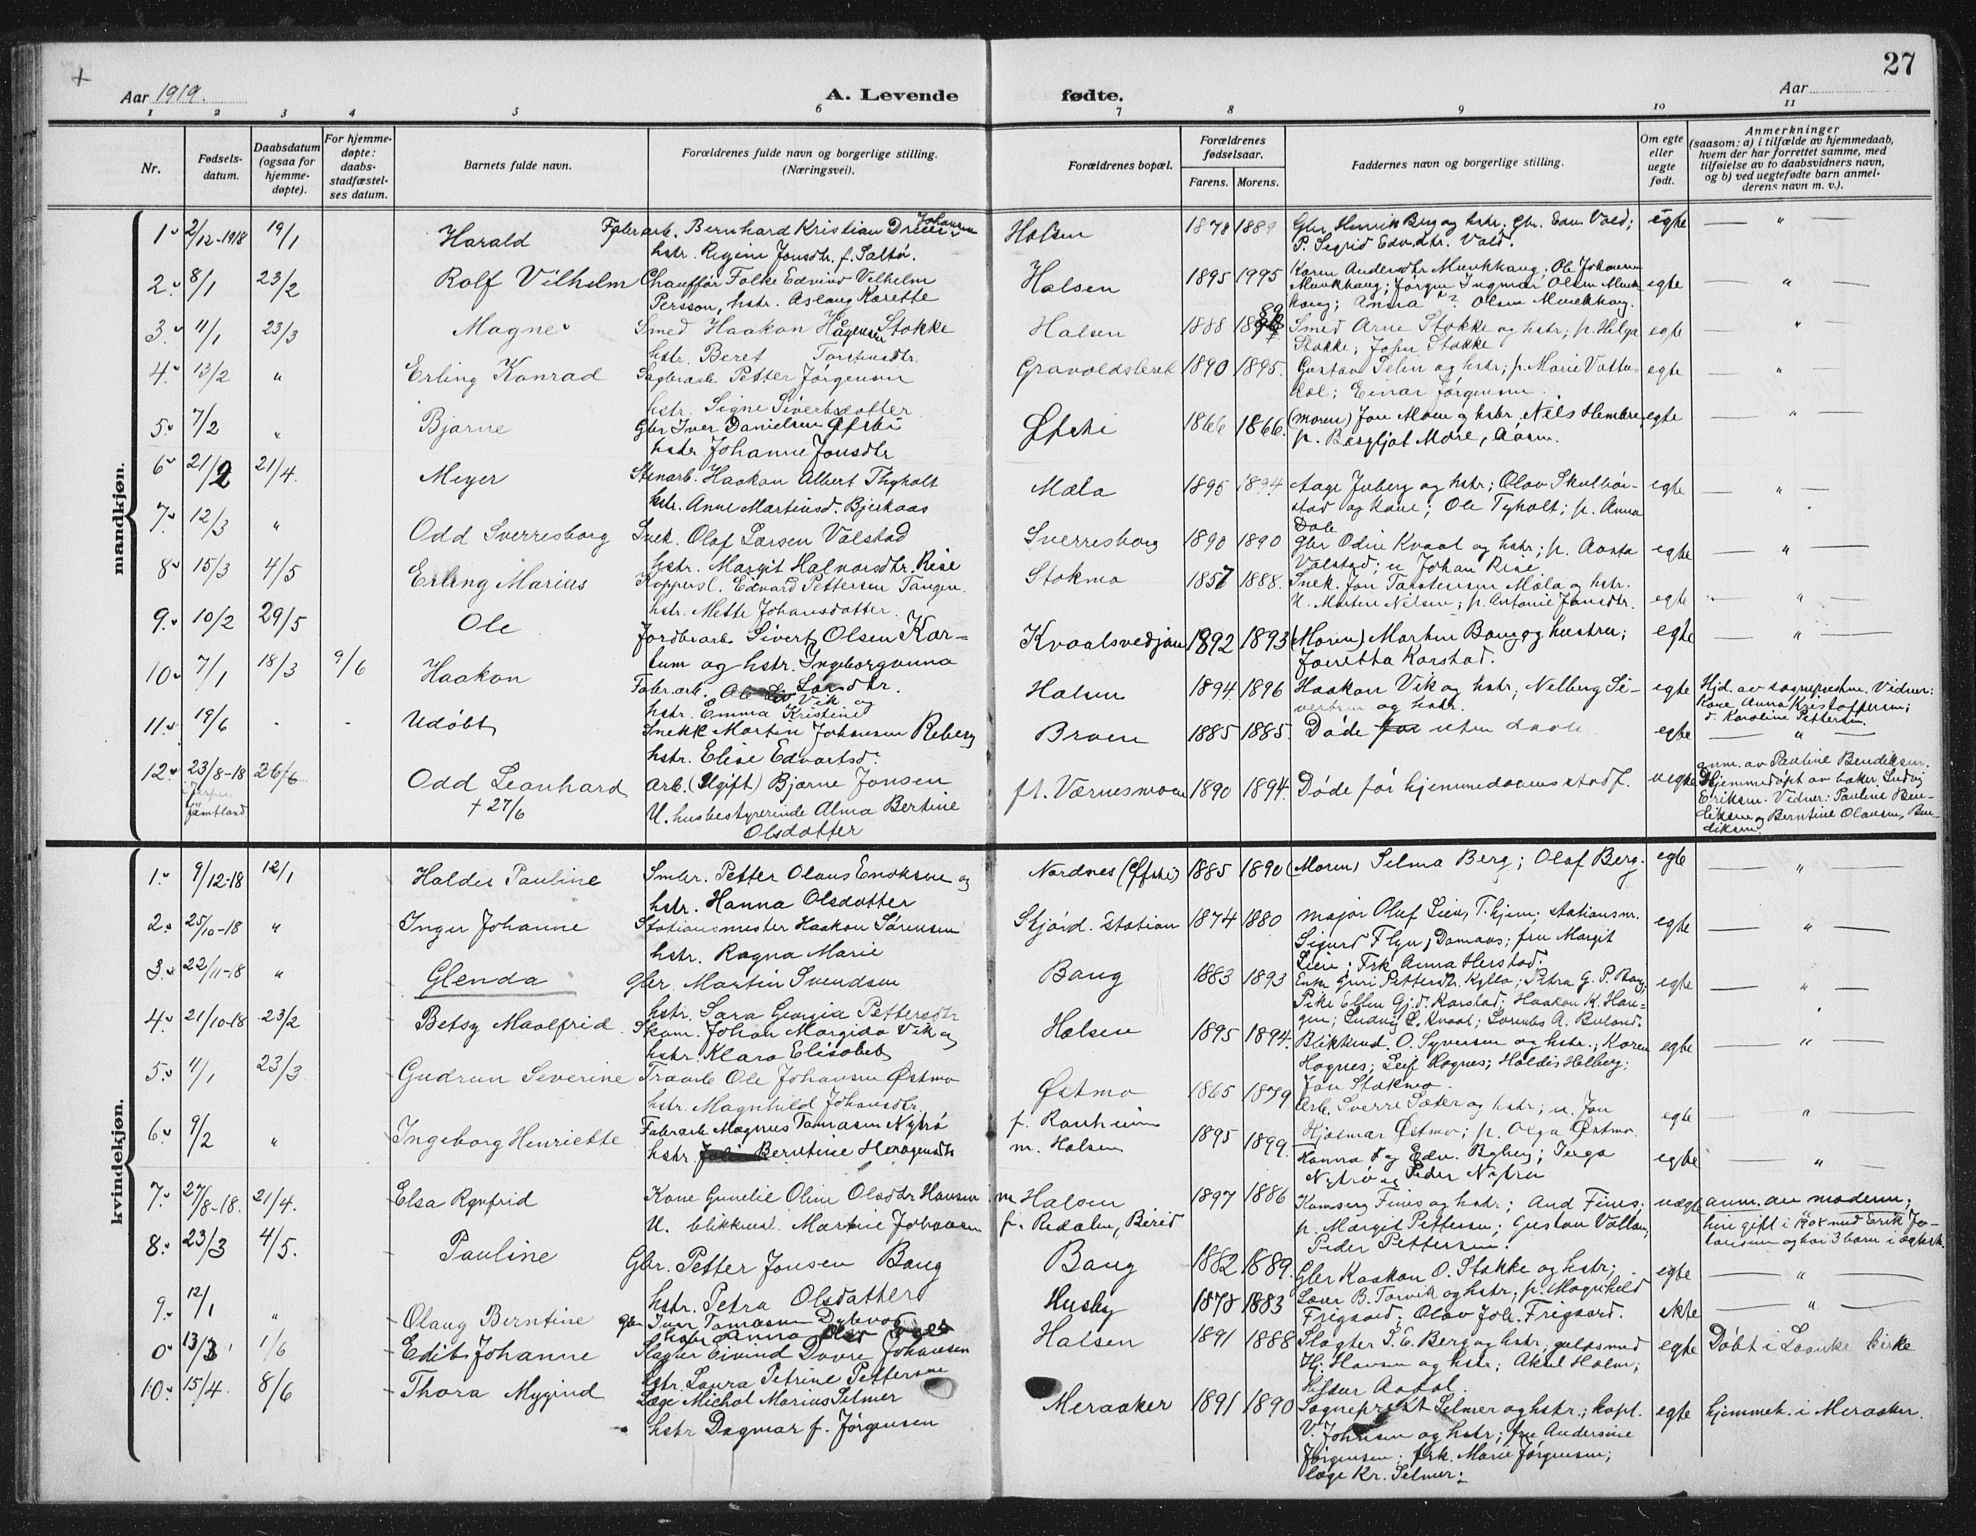 27
Aar 1919. A. Levende fødte. Aar
1 2 3 4 5 6 7 8 9 10 11
Nr. Fødsels-datum. Daabsdatum (ogsaa for hjemme-døpte). For hjemme-døpte: daabs-stadfæstel-ses datum. Barnets fulde navn. Forældrenes fulde navn og borgerlige stilling. (Næringsvei). Forældrenes bopæl. Forældrenes fødselsaar. Farens. Morens. Faddernes navn og borgerlige stilling. Om egte eller uegte født. Anmerkninger (saasom: a) i tilfælde av hjemmedaab, hvem der har forrettet samme, med tilføielse av to daabsvidners navn, og b) ved uegtefødte barn anmel-derens navn m. v.).
mandkjøn.
1 2/12-1918 19/1 Harald Fabrarb. Bernhard Kristian Johansen Halsen 1878 1889 egte — " —
hstr. Regine Jonsdtr. f. Saltø. P. Sigrid Edv.dtr. Vold.
2. 8/1 23/2 Rolf Vilhelm Chauffør Folke Edvind Vilhelm Halsen 1895 1995 Karen Andersdtr Munkhaug; Ole Johansen egte — " —
Persson, hstr. Aslaug Karette Munkhaug; Jørgen Ingmar Olsen Munk-
haug; Anna ? Olsen Munkhaug.
3. 11/1 23/3 Magne Smed Haakon Haagensen Stokke Halsen 1888 Smed Arne Stokke og hstr; p. Helga egte — " —
hstr. Beret Torstensdtr. Stokke; John Stokke
4. 13/2 " Erling Konrad Saglarb. Petter Jørgensen Gravoldsleret 1890 1895. Gustav Selin og hstr; p. Marie egte — " —
hstr. Signe Sivertsdatter Einar Jørgensen.
5. 7/2 " Bjarne Gbr Iver Danielsen Øfsti Øfsti 1866 1866. (moren) Jon Moen og hstr, Nils Hembre, egte — " —
hstr Johanne Jonsdtr p. Bergljot More, Aasen.
6. 21/2 21/4. Meyer Stenarb. Haakon Albert Thyholt Mæla 1895 1894 Aage Juberg og hstr; Olav egte — " —
hstr. Anne Martinsd. Bjerkaas stad og kone; Ole Tyholt; p. Anna
Dole
7. 12/3 " Odd Sverresborg Snek. Olaf Larsen Valstad Sverresborg 1890 1890 Gbr Odin Kvaal og hstr; p. Aasta egte — " —
hstr. Margit Halvorsdtr. Rise Valstad; u Johan Rise
8. 15/3 4/5 Erling Marius Koppersl. Edvard Pettersen Tangen Stokmo 1857 1888. Snek. Jon Torstensen Mæla og hstr. egte — " —
hstr. Mette Johansdatter. U. Morten Nilsen; p. Antonie Jonsdtr.
9. 10/2 29/5 Ole Jordbrarb. Sivert Olsen Kar- Kvaalsvedjan 1892 1893 (Moren) Martin Bang og hustru; egte — " —
tum og hstr. Ingeborganna Joretta Karstad.
Larsdtr.
10. 7/1 18/3 9/6 Haakon Fabr.arb. Ole Vik og Halsen 1894 1896 Haakon Vik og hstr; Nelberg Si- egte Hjd. av sognepresten. Vidner:
hstr. Emma Kristine vertsen og hstr. Kone Anna Kristoffersen;
d. Karoline Pettersen.
11. 19/6 - - Udøbt Snekk Morten Johansen Reberg Broen 1885 1885. Døde uten daab egte — " —
hstr. Elise Edvartsd.
12. 23/8-18 26/6 Odd Leonhard Arb. (Ugift) Bjarne Jonsen ft. Værnesmoen 1890 1894. Døde før hjemmedaabens stadf. uegte anm. av Pauline Bendiksen.
Jämtland + 27/6 U. husbestyrerinde Alma Bertine Hjemmedøpt av baker Ludvig
Olsdatter Eriksen. Vidner: Pauline Ben-
diksen og Berntine Olausen, Ben-
diksen
kvindekjøn.
1. 9/12-18 12/1 Haldis Pauline Smbr. Petter Olaus Enoksen og Nordnes (Øfsti) 1885 1890 (Moren) Selma Berg; Olaf Berg. egte — " —
hstr. Hanna Olsdatter
2. 25/10-18 " Inger Johanne Stationsmester Haakon Sørensen Skjørd. Station 1874 1880 major Oluf Lien, T.hjem; stationsm. egte — " —
hstr. Ragna Marie Sigurd Flyn, Domaas; fru Margit
Lien; Frk Anna Herstad.
3. 22/11-18 " Glenda Gbr. Martin Svendsen Bang 1883 1893 Enke Guri Pettersdtr. Kyllo; Petra G. P. Bang; egte — " —
hstr. Sara Georgia Pettersdtr Pike Ellen Gj.d. Karstad; Haakon K. Hau-
gen; Ludvig L. Kvaal; Lorents A. Buland.
4. 21/10-18 23/2 Betsy Maalfrid Skom. Johan Margido Vik og Halsen 1895 1894. Blikkensl. O. Syversen og hstr.; Karen egte — " —
hstr. Klara Elisabet Hognes; Leif Hognes; Haldis Helberg;
Jon Stokmo.
5. 11/1 23/3 Gudrun Severine Traarb Ole Johansen Østmo Østmo 1865 1879 Arb. Sverre Sæter og hstr; u. Jon egte — " —
hstr. Magnhild Johansdtr. Hjalmar Østmo; p. Olga Østmo.
6. 9/2 " Ingeborg Henriette Fabrarb Magnus Tomasen Nytrø f. Ranheim 1895 1899. Hanna egte — " —
hstr Berntine m. Halsen Nytrø og Peder Nytrø
7. 27/8-18. 21/4. Elsa Ragnfrid Kone Gunelie Oline Olsdtr Hansen m Halsen 1897 1886 Kamserg Fines og hstr; And Fines; uegte anm. av moderen;
U. blikkensl. Martin Johansen f. Redalen, Birid p. Margit Pettersen; Gustav Vollan; hun gift i 1908 med Erik Jo-
Peder Pettersen. hansen og har 3 barn i egtesk.
8. 23/3 4/5. Pauline Gbr. Petter Jonsen Bang Bang 1882 1889. Gbr Haakon O. Stokke og hstr; egte — " —
hstr. Petra Olsdatter
9. 12/1 " Olaug Berntine Gbr Iver Tomasen Husby 1878 1883 Lærer B. Torvik og hstr; p. Magnhild ekte — " —
hstr Anna Frigaard; Olav Joh. Frigaard.
0 13/3 1/6 Edit Johanne Slagter Eivind Dovre Johansen Halsen 1891 1888 Slagter T. E. Berg og hstr; egte Døbt i Laanke kirke
hstr. Laura Petrine Pettersen Hj. Hansen og hstr; Aksel Holm;
10. 15/4. 8/6 Thora Mygind Læge Michal Marius Selmer Meraaker 1891 1890 Sogneprest Selmer og hstr.; kapt. egte hjemmeh. i Meraaker.
hstr Dagmar f. Jørgensen V. Johnsen og hstr; fru Andersine
Jørgensen; frk. Marie Jørgensen;
læge Kr. Selmer.